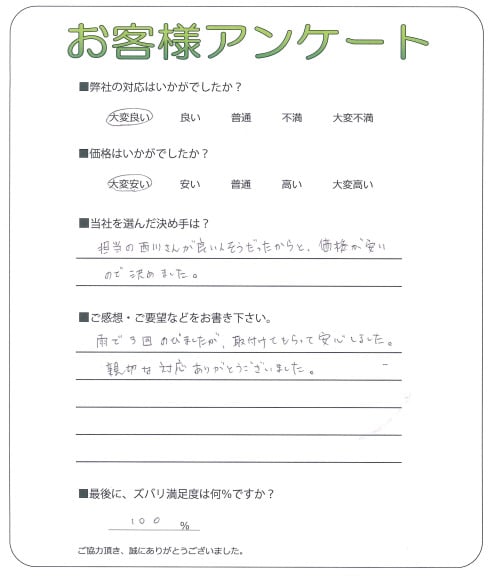 お客様アンケート
■弊社の対応はいかがでしたか？
大変良い 良い 普通 不満 大変不満
■価格はいかがでしたか？
大変安い 安い 普通 高い 大変高い
■当社を選んだ決め手は？
担当の西川さんが良い人そうだったからと、価格が安い
ので決めました。
■ご感想・ご要望などをお書き下さい。
雨で3回のびましたが、取付けてもらって安心しました。
親切な対応ありがとうございました。
■最後に、ズバリ満足度は何%ですか？
100 %
ご協力頂き、誠にありがとうございました。